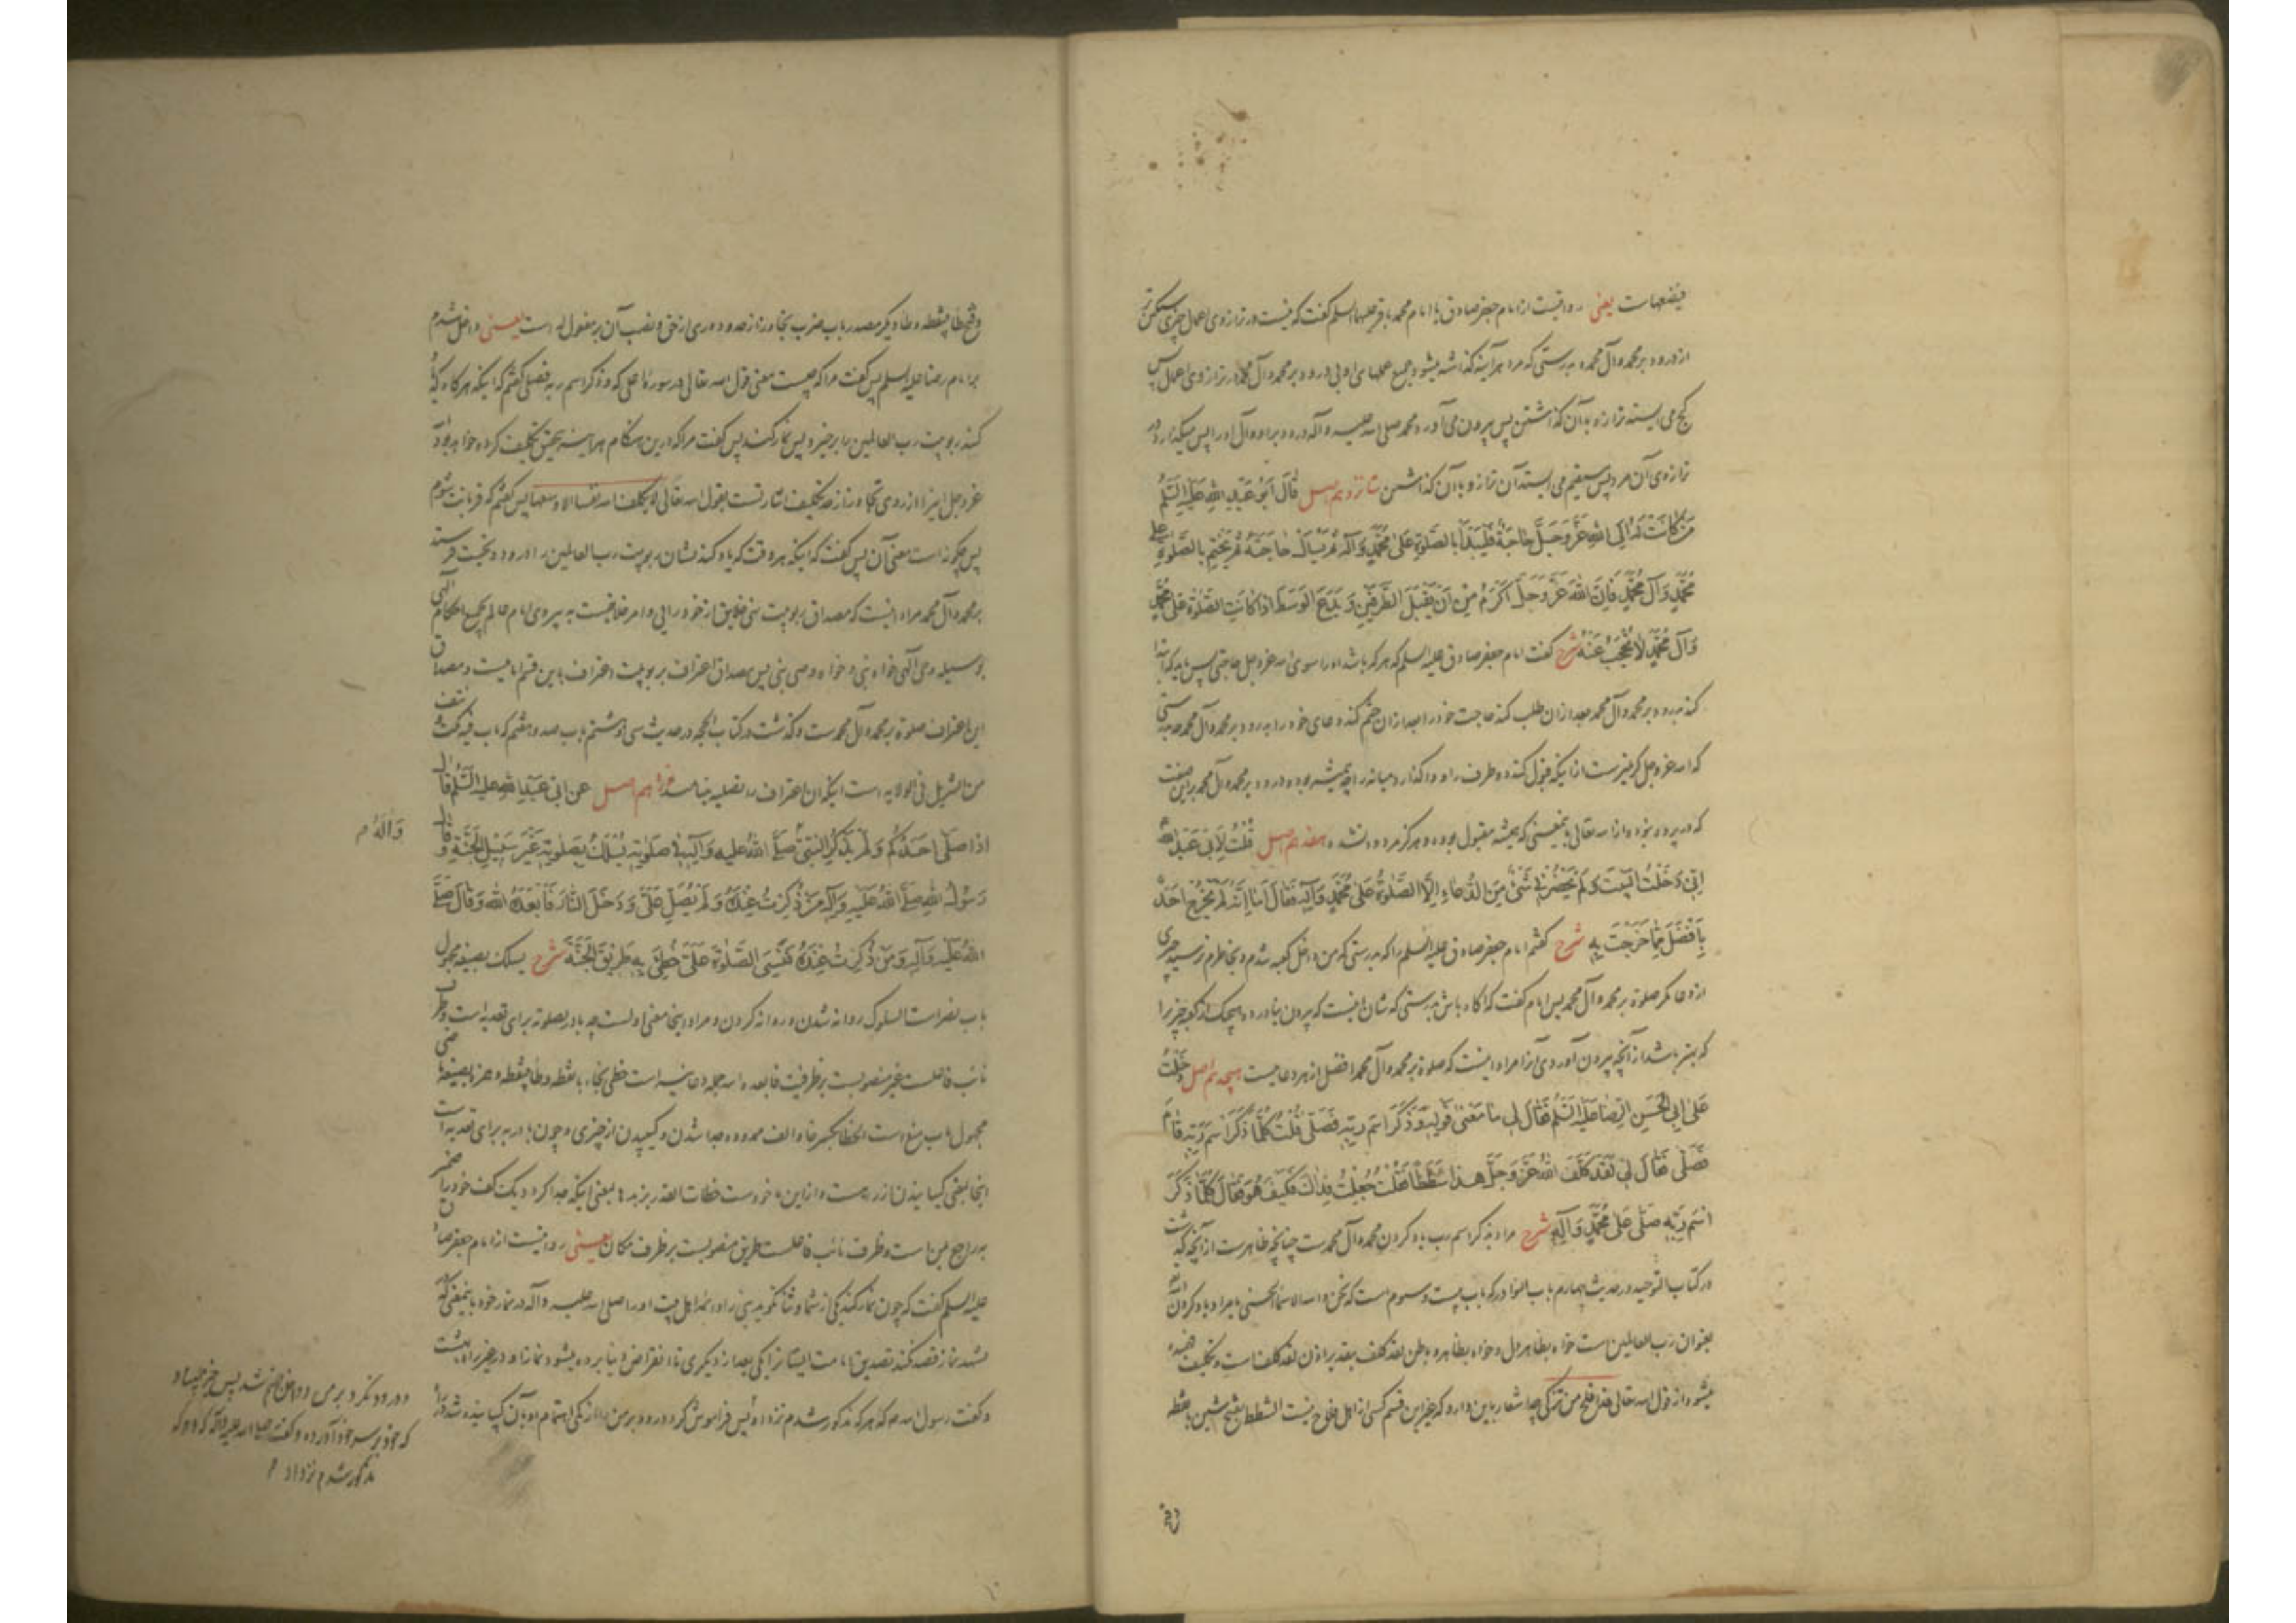 فیضعها ست یعنی روایتست از امام جعفر صادق یا امام محمد باقر علیهما السلم گفت که نیست در ترازوی اعمال چیزی سنگین‌تر
از درود بر محمد و آل محمد و بدرستی که مرد هرآینه گذاشته میشود جمیع عملهای او بی درود بر محمد و آل محمد در ترازوی اعمال پس
کج می ایستد ترازو با آن گذاشتن پس بیرون می آورد محمد صلی الله علیه و آله درود بر او و آل او را پس میگذارد در
ترازوی آن مرد پس مستقیم می ایستد آن ترازو با آن گذاشتن شانزدهم اصل قَالَ اَبُو عَبْدِ اللهِ عَلَیْهِ السَّلَمُ
مَنْ کَانَتْ لَهُ اِلَی اللهِ عَزَّ وَجَلَّ حَاجَةٌ فَلْیَبْدَأْ بِالصَّلٰوةِ عَلٰی مُحَمَّدٍ وَآلِهِ ثُمَّ یَسْأَلُ حَاجَتَهُ ثُمَّ یَخْتِمُ بِالصَّلٰوةِ عَلٰی
مُحَمَّدٍ وَآلِ مُحَمَّدٍ فَاِنَّ اللهَ عَزَّ وَجَلَّ اَکْرَمُ مِنْ اَنْ یَقْبَلَ الطَّرَفَیْنِ وَیَدَعَ الْوَسَطَ اِذَا کَانَتِ الصَّلٰوةُ عَلٰی مُحَمَّدٍ
وَآلِ مُحَمَّدٍ لَا تُحْجَبُ عَنْهُ شرح گفت امام جعفر صادق علیه السلم که هر که باشد او را سوی الله عز و جل حاجتی پس باید که ابتدا
کند بدرود بر محمد و آل محمد بعد از ان طلب کند حاجت خود را بعد از ان ختم کند دعای خود را بدرود بر محمد و آل محمد چه بدرستی
که الله عز و جل کریمترست از اینکه قبول کند دو طرف را و واگذارد میانه را چه همیشه بوده درود بر محمد و آل محمد بر این صفت
که در پرده نبوده از الله تعالی باینمعنی که همیشه مقبول بوده و هرگز مردود نشده هفدهم اصل قُلْتُ لِاَبِی عَبْدِ اللهِ
اِنِّی دَخَلْتُ الْبَیْتَ وَلَمْ یَحْضُرْنِی شَیْءٌ مِنَ الدُّعَاءِ اِلَّا الصَّلٰوةُ عَلٰی مُحَمَّدٍ وَآلِهِ فَقَالَ اَمَا اِنَّهُ لَمْ یَخْرُجْ اَحَدٌ
بِاَفْضَلَ مِمَّا خَرَجْتَ بِهِ شرح گفتم امام جعفر صادق علیه السلم را که بدرستی که من داخل کعبه شدم و بخاطرم نرسید چیزی
از دعا مگر صلوة بر محمد و آل محمد پس امام گفت که آگاه باش بدرستی که شان اینست که بیرون نیاورده هیچیک از کعبه چیزی را
که بهتر باشد از آنچه بیرون آوردی آنرا مراد اینست که صلوة بر محمد و آل محمد افضل از هر دعاییست هیجدهم اصل دَخَلْتُ
عَلٰی اَبِی الْحَسَنِ الرِّضَا عَلَیْهِ السَّلَمُ فَقَالَ لِی مَا مَعْنٰی قَوْلِهِ وَذَکَرَ اسْمَ رَبِّهِ فَصَلّٰی قُلْتُ کُلَّمَا ذَکَرَ اسْمَ رَبِّهِ قَامَ
فَصَلّٰی فَقَالَ لِی لَقَدْ کَلَّفَ اللهُ عَزَّ وَجَلَّ هٰذَا شَطَطًا فَقُلْتُ جُعِلْتُ فِدَاکَ فَکَیْفَ هُوَ فَقَالَ کُلَّمَا ذَکَرَ
اسْمَ رَبِّهِ صَلّٰی عَلٰی مُحَمَّدٍ وَآلِهِ شرح مراد بذکر اسم رب یاد کردن محمد و آل محمد ست چنانچه ظاهرست از آنچه گذشت
در کتاب التوحید در حدیث چهارم باب النوادر که باب بیست و سوم است که نحن والله الاسماء الحسنی یا مراد یاد کردن
بعنوان رب العالمین است خواه بظاهر دل و خواه بظاهر و باطن لقد کلف بتقدیر اذن لقد کلف است و تکلیف
میشود از قول الله تعالی قد افلح من تزکی چه اشعار باین دارد که غیر این قسم کسی از اهل فلاح نیست الشطط بفتح شین بانقطه
و فتح طاء بینقطه و طاء دیگر مصدر باب ضرب تجاوز از حد و دوری از حق و نصب آن بر مفعول له است یعنی داخل شدم
بر امام رضا علیه السلم پس گفت مرا که چیست معنی قول الله تعالی در سوره اعلی که وذکر اسم ربه فصلی گفتم که اینکه هرگاه یاد
کند ربوبیت رب العالمین را برخیزد پس نماز کند پس گفت مرا که درین هنگام هرآینه بتحقیق تکلیف کرده خواهد بود
عز و جل اینرا از روی تجاوز از حد تکلیف اشارتست بقول الله تعالی لا یکلف الله نفسا الا وسعها پس گفتم که قربانت شوم
پس چگونه است معنی آن پس گفت که اینکه هر وقت که یاد کند نشان ربوبیت رب العالمین را درود و تحیت فرستد
بر محمد و آل محمد مراد اینست که مصداق ربوبیت نهی خلایق از خودرایی و امر خلایقست به پیروی امام عالم بجمیع احکام الهی
بوسیله وحی الهی خواه نبی و خواه وصی نبی پس مصداق اعتراف بربوبیت اعتراف باین قسم امامیست و مصداق
این اعتراف صلوة بر محمد و آل محمد ست و گذشت در کتاب الحجة در حدیث سی و هشتم باب صد و هفتم که باب فیه نکت و نتف
من التنزیل فی الولایة است اینکه ان اعتراف را تصلیه مینامند نوزدهم اصل عَنْ اَبِی عَبْدِ اللهِ عَلَیْهِ السَّلَمُ قَالَ
اِذَا صَلّٰی اَحَدُکُمْ وَلَمْ یَذْکُرِ النَّبِیَّ صَلَّی اللهُ عَلَیْهِ وَآلِهِ فِی صَلٰوتِهِ یُسْلَکُ بِصَلٰوتِهِ غَیْرَ سَبِیلِ الْجَنَّةِ وَقَالَ
وَآلَهُ م
رَسُولُ اللهِ صَلَّی اللهُ عَلَیْهِ وَآلِهِ مَنْ ذُکِرْتُ عِنْدَهُ وَلَمْ یُصَلِّ عَلَیَّ وَدَخَلَ النَّارَ فَاَبْعَدَهُ اللهُ وَقَالَ صَلَّی
اللهُ عَلَیْهِ وَآلِهِ وَمَنْ ذُکِرْتُ عِنْدَهُ فَنَسِیَ الصَّلٰوةَ عَلَیَّ خُطِئَ بِهِ طَرِیقَ الْجَنَّةِ شرح یسلک بصیغه مجهول
باب نصر است السلوک روانه شدن و روانه کردن و مراد اینجا معنی اولست چه باء در بصلوته برای تعدیه است و ظرف
نائب فاعلست غیر منصوبست بر ظرفیت فابعده الله جمله دعائیه است خطئ بخاء بانقطه و طاء بینقطه و همزه بصیغه ماضی
مجهول باب منع است الخطاء بکسر خاء و الف ممدوده جدا شدن و کپیدن از چیزی و چون باء در به برای تعدیه است
اینجا بمعنی کپانیدنست و ازین ماخوذست خطات القدر بزبدها بمعنی اینکه جدا کرد دیک کف خود را ضمیر
به راجع بمن است و ظرف نائب فاعلست طریق منصوبست بر ظرف مکان یعنی روایتست از امام جعفر صادق
علیه السلم گفت که چون نماز کند یکی از شما و ثنا نگوید نبی را و ائمه اهل بیت او را صلی الله علیه و آله در نماز خود باینمعنی که
تصدیق امامت ایشان یکی بعد از دیگری تا انقراض دنیا برده میشود نماز او در غیر راه بهشت
و گفت رسول الله ص که هر که مذکور شدم نزد او پس فراموش کرد درود بر من را
و درود نکرد بر من و داخل جهنم شد پس
که خود بر سر خود آورده و گفت صلی الله علیه و آله که و هر که
مذکور شدم نزد او م